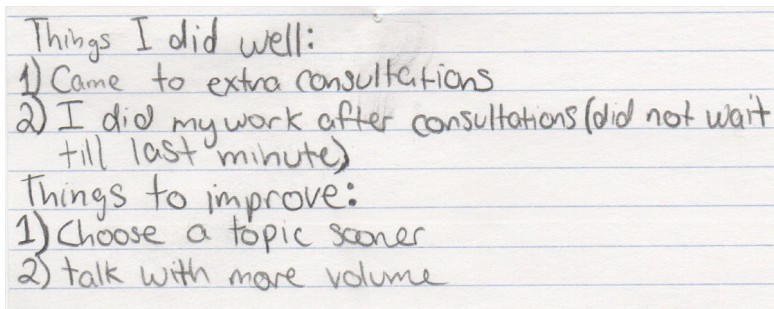 Things I did well:
1) Came to extra consultations
2) I did my work after consultations (did not wait
till last minute)
Things to improve:
1) Choose a topic sooner
2) talk with more volume